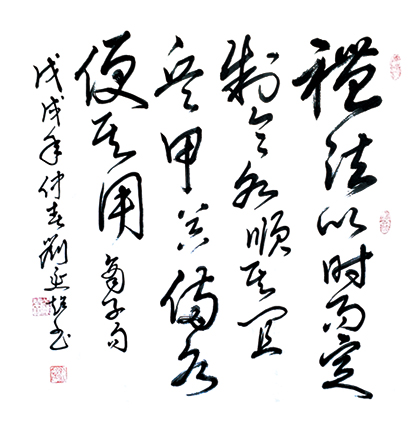 禮法以时而定
制令各順其宜
兵甲器備各
便其用 商子句
戊戌年仲春劉延书